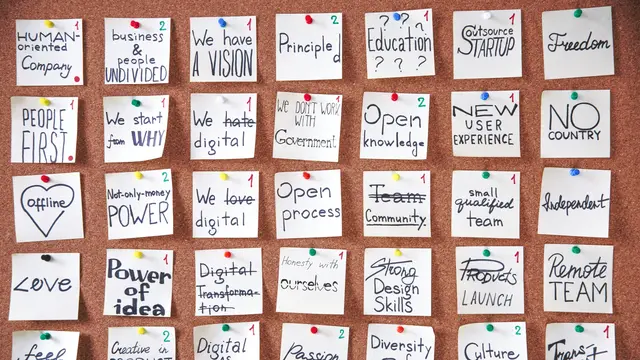 1
HUMAN-
oriented
Company
2
business
&
people
UNDIVIDED
1
We have
A VISION
2
Principled
2
? ? ?
Education
? ? ?
1
Outsource
STARTUP
Freedom
PEOPLE
FIRST
1
We start
from WHY
1
We hate
digital
1
We DON'T WORK
WITH
Government
2
Open
knowledge
1
NEW
USER
EXPERIENCE
NO
COUNTRY
offline
2
Not-only-money
POWER
1
We love
digital
1
Open
process
1
Team
Community
1
small
qualified
team
Independent
Love
1
Power
of
idea
1
Digital
Transforma-
tion
1
Honesty with
ourselves
Strong
Design
Skills
1
PRODUCTS
LAUNCH
Remote
TEAM
feel
2
Creative in
PRODUCT
1
Digital
as
2
Passion
2
Diversity
of
2
Culture
1